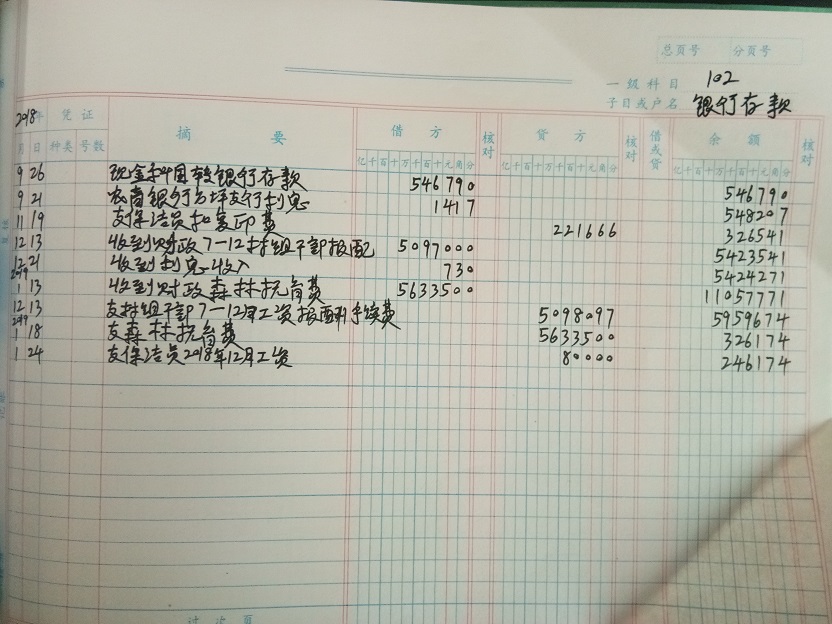 总页号 分页号
一级科目 102
子目或户名 银行存款
2018年 凭证 摘要 借方 核对 贷方 核对 借或贷 余额 核对
月 日 种类 号数 亿千百十万千百十元角分 亿千百十万千百十元角分 亿千百十万千百十元角分
9 26 现金 银行存款 546790 546790
9 21 农商银行 支行利息 1417 548207
11 19 支保洁员和复印费 221666 326541
12 13 收到财政7-12村组干部报酬 5097000 5423541
12 21 收到利息收入 730 5424271
2019
1 13 收到财政森林抚育费 5633500 11057771
12 13 支村组干部7-12月工资报酬和手续费 5098097 5959674
2019
1 18 支森林抚育费 5633500 326174
1 24 支保洁员2018年12月工资 80000 246174
过次页